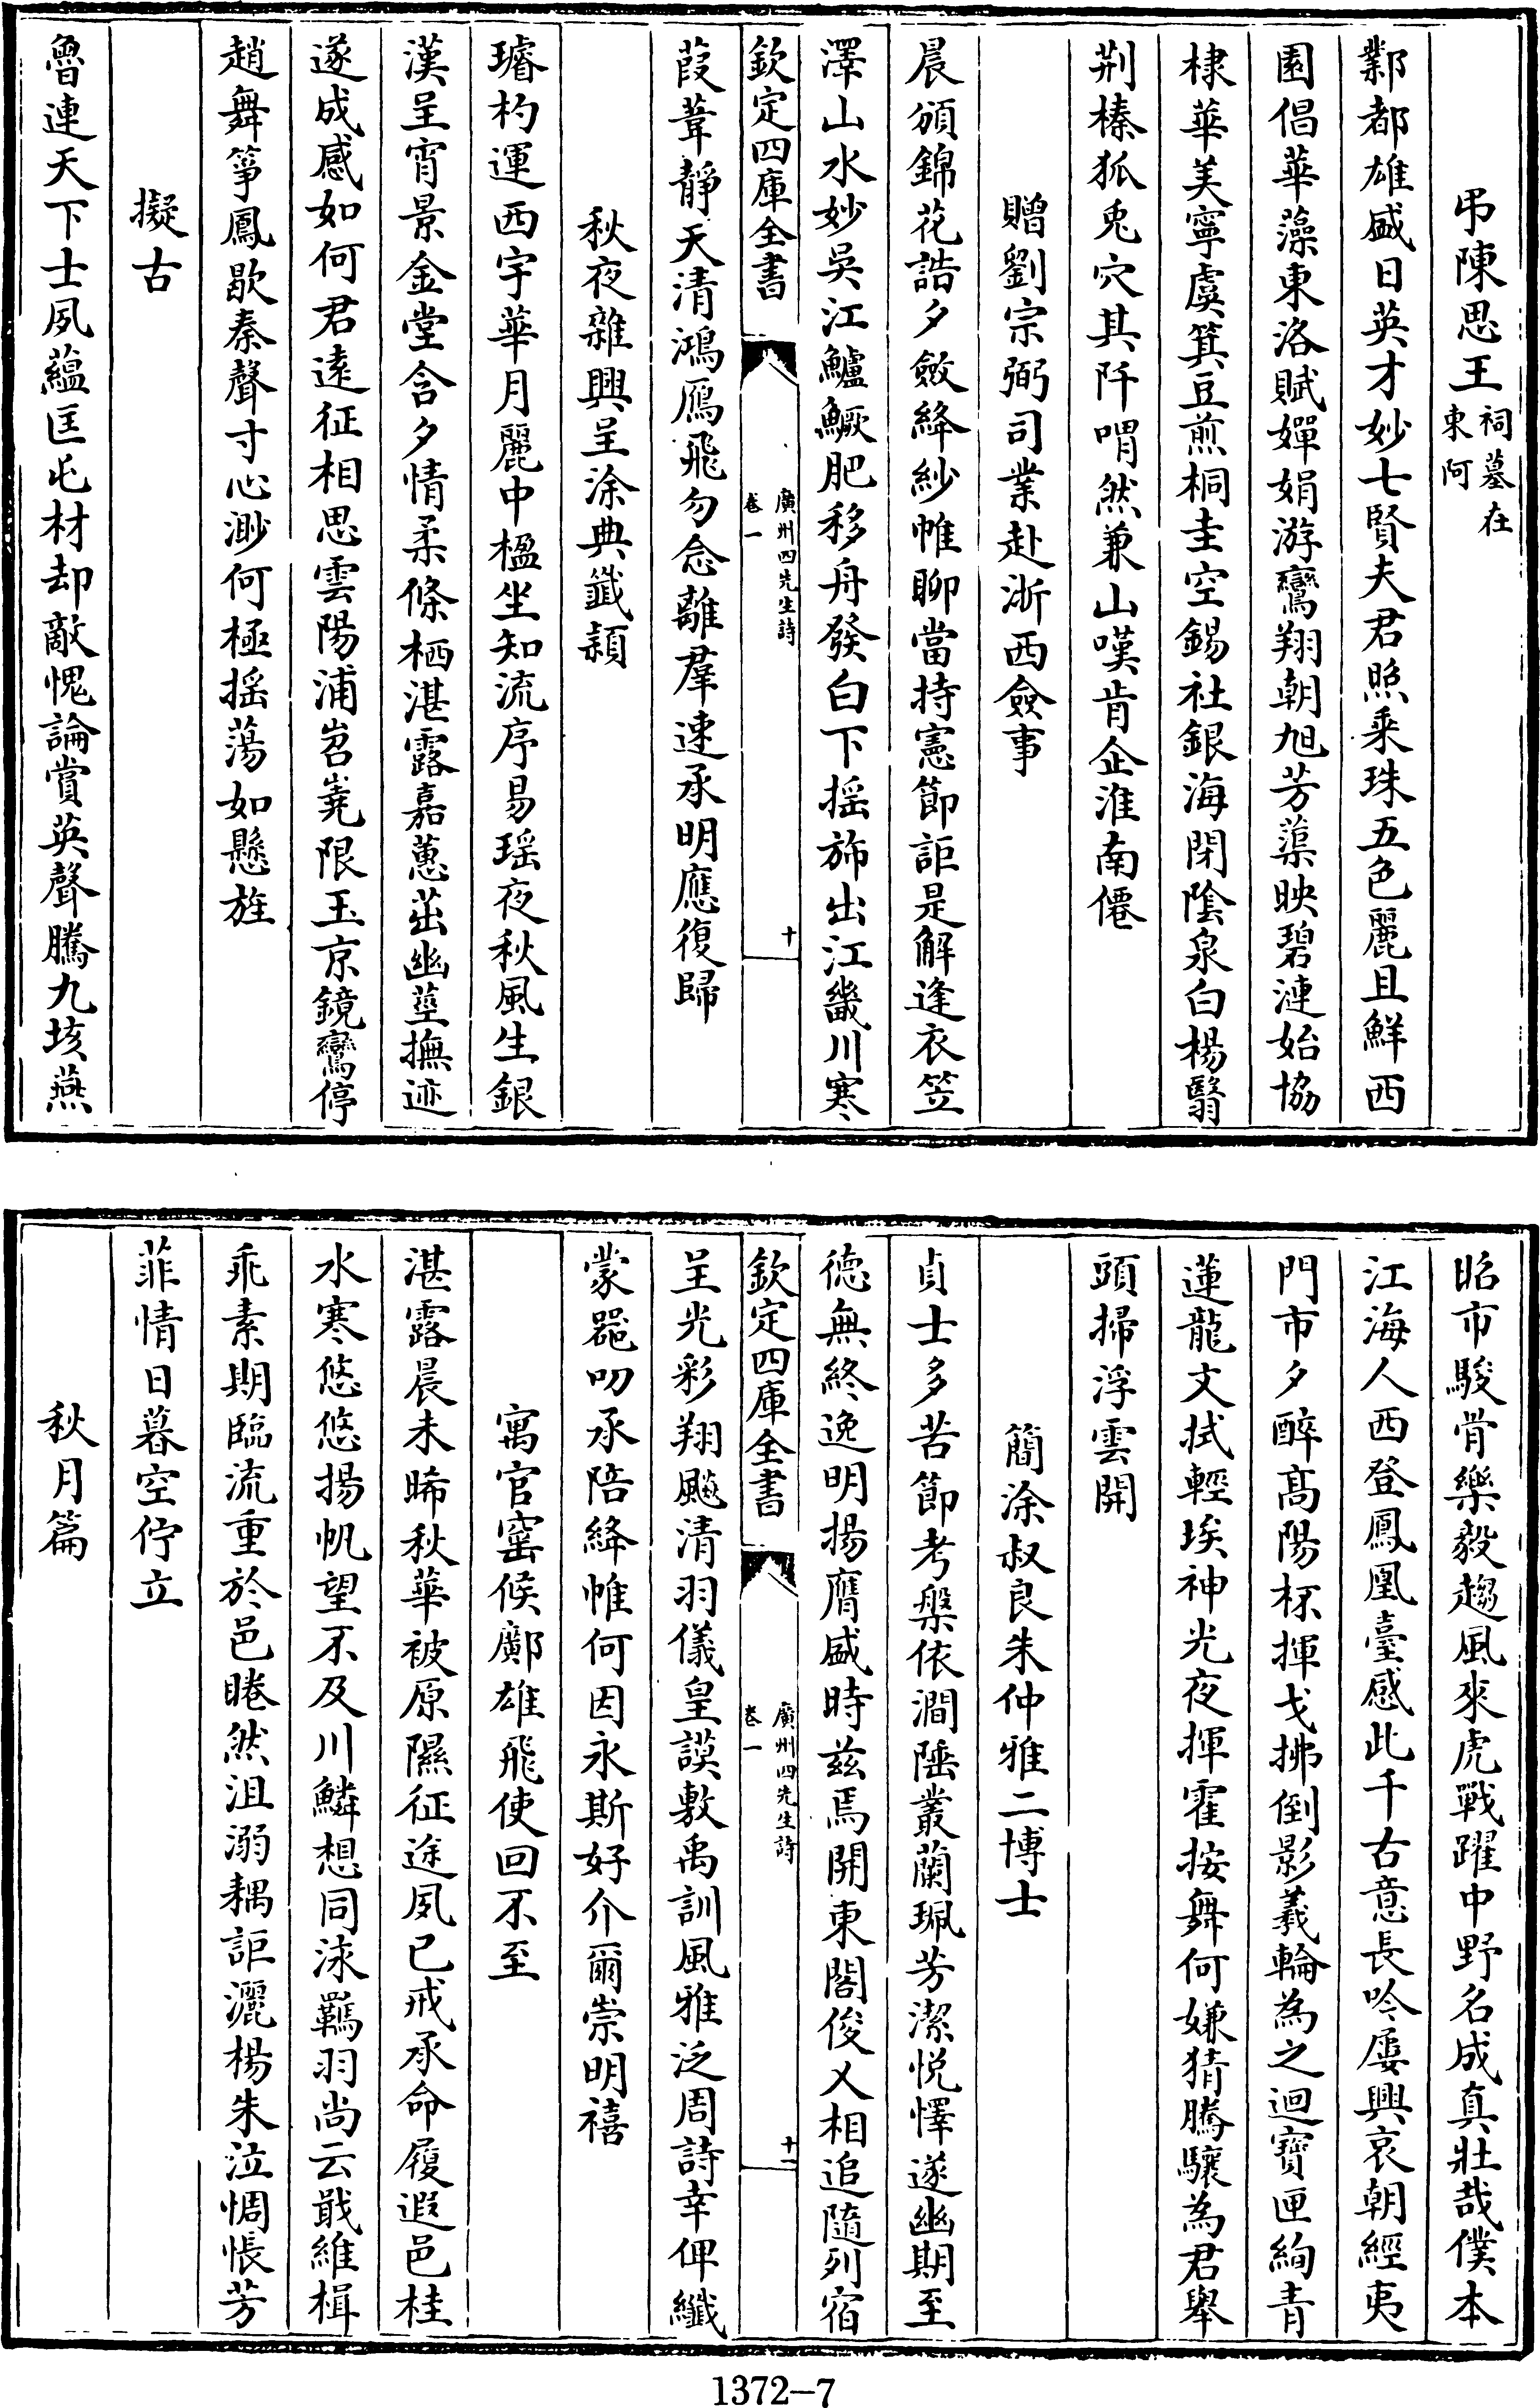 弔陳思王祠墓在東阿
鄴都雄盛日英才妙七賢夫君照乘珠五色麗且鮮西
園倡華藻東洛賦嬋娟游鸞翔朝旭芳蕖映碧漣始協
棣華美寧虞箕豆煎桐圭空錫社銀海閉陰泉白楊翳
荆榛狐兎穴其阡喟然兼山嘆肯企淮南僊
贈劉宗弼司業赴浙西僉事
晨頒錦花誥夕斂絳紗帷聊當持憲節詎是解逢衣笠
澤山水妙吳江鱸鱖肥移舟發白下揺斾出江畿川寒
欽定四庫全書
廣州四先生詩
卷一
十
葭葦靜天清鴻鴈飛勿念離羣速承明應復歸
秋夜雜興呈涂典籖潁
璿杓運西宇華月麗中楹坐知流序易瑶夜秋風生銀
漢呈宵景金堂含夕情柔條栖湛露嘉蕙茁幽莖撫迹
遂成感如何君遠征相思雲陽浦岧嶤限玉京鏡鸞停
趙舞箏鳳歇秦聲寸心渺何極揺蕩如懸旌
擬古
魯連天下士夙藴匡屯材却敵愧論賞英聲騰九垓燕
昭市駿骨樂毅趨風來虎戰躍中野名成真壯哉僕本
江海人西登鳳凰臺感此千古意長吟屢興哀朝經夷
門市夕醉髙陽杯揮戈拂倒影羲輪為之迴寶匣絢青
蓮龍文拭輕埃神光夜揮霍按舞何嫌猜騰驤為君舉
頭掃浮雲開
簡涂叔良朱仲雅二博士
貞士多苦節考槃依澗陲叢蘭珮芳潔悦懌遂幽期至
徳無終逸明揚膺盛時兹焉開東閣俊乂相追隨列宿
欽定四庫全書
廣州四先生詩
卷一
十一
呈光彩翔飈清羽儀皇謨敷禹訓風雅泛周詩幸俾纖
蒙器叨承陪絳帷何因永斯好介爾崇明禧
寓官窰候鄺雄飛使回不至
湛露晨未晞秋華被原隰征途夙已戒承命履遐邑桂
水寒悠悠揚帆望不及川鱗想同泳羈羽尚云戢維楫
乖素期臨流重於邑睠然沮溺耦詎灑楊朱泣惆悵芳
菲情日暮空佇立
秋月篇
1372-7